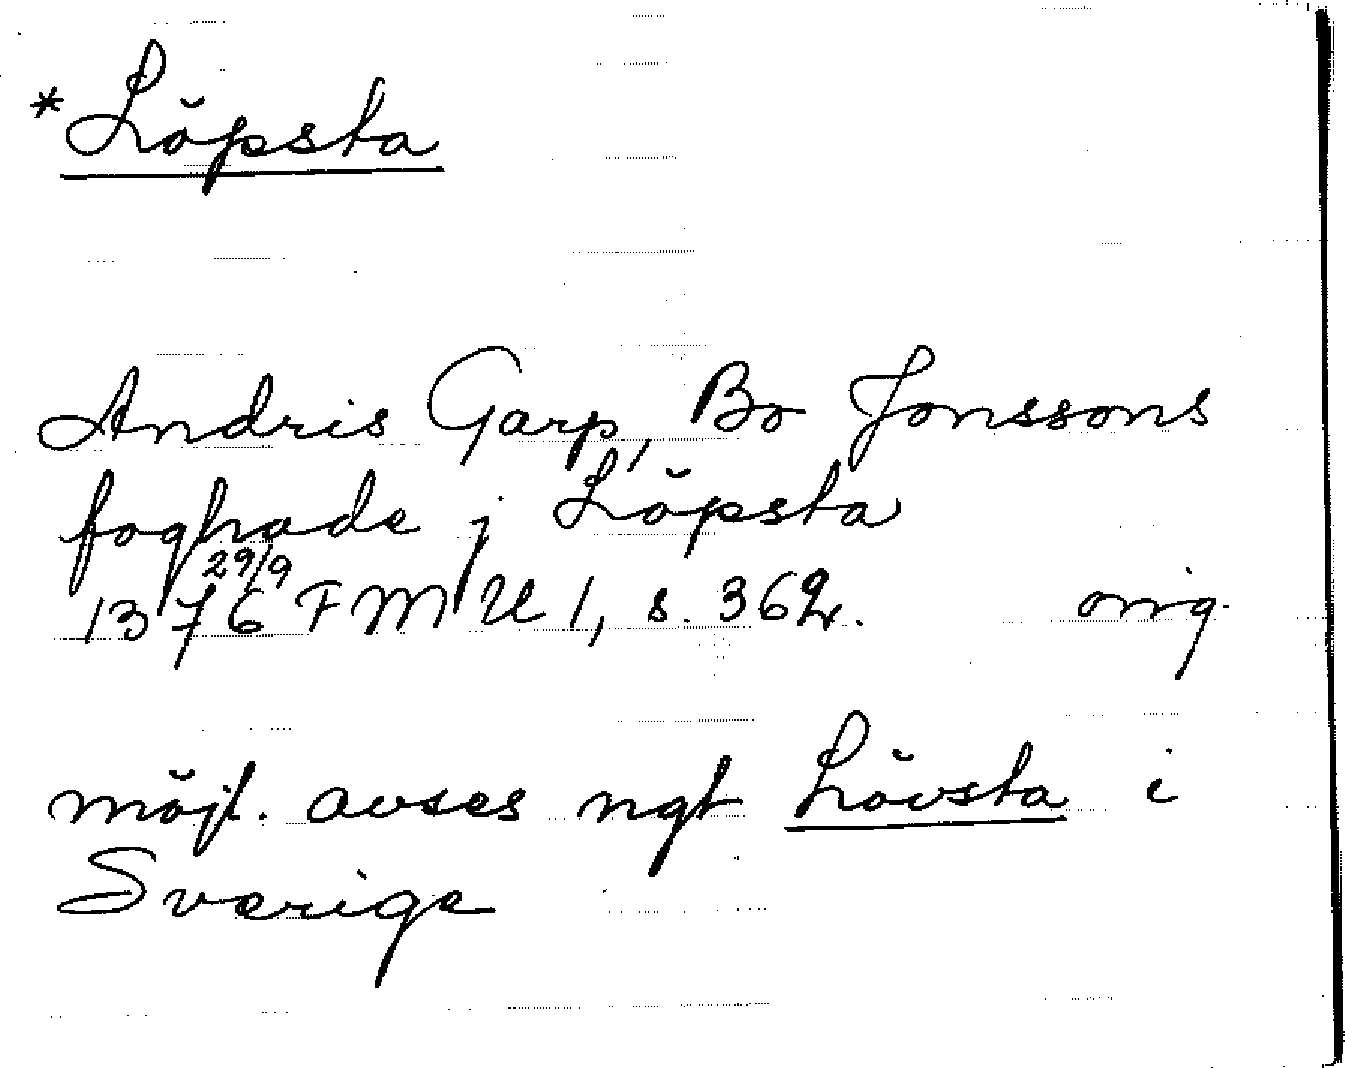 *Löpsta
Andris Garp, Bo Jonssons
foghade j Löpsta
29/9
1376 FMU 1, s. 362. orig.
möjl. avses ngt Lövsta i
Sverige